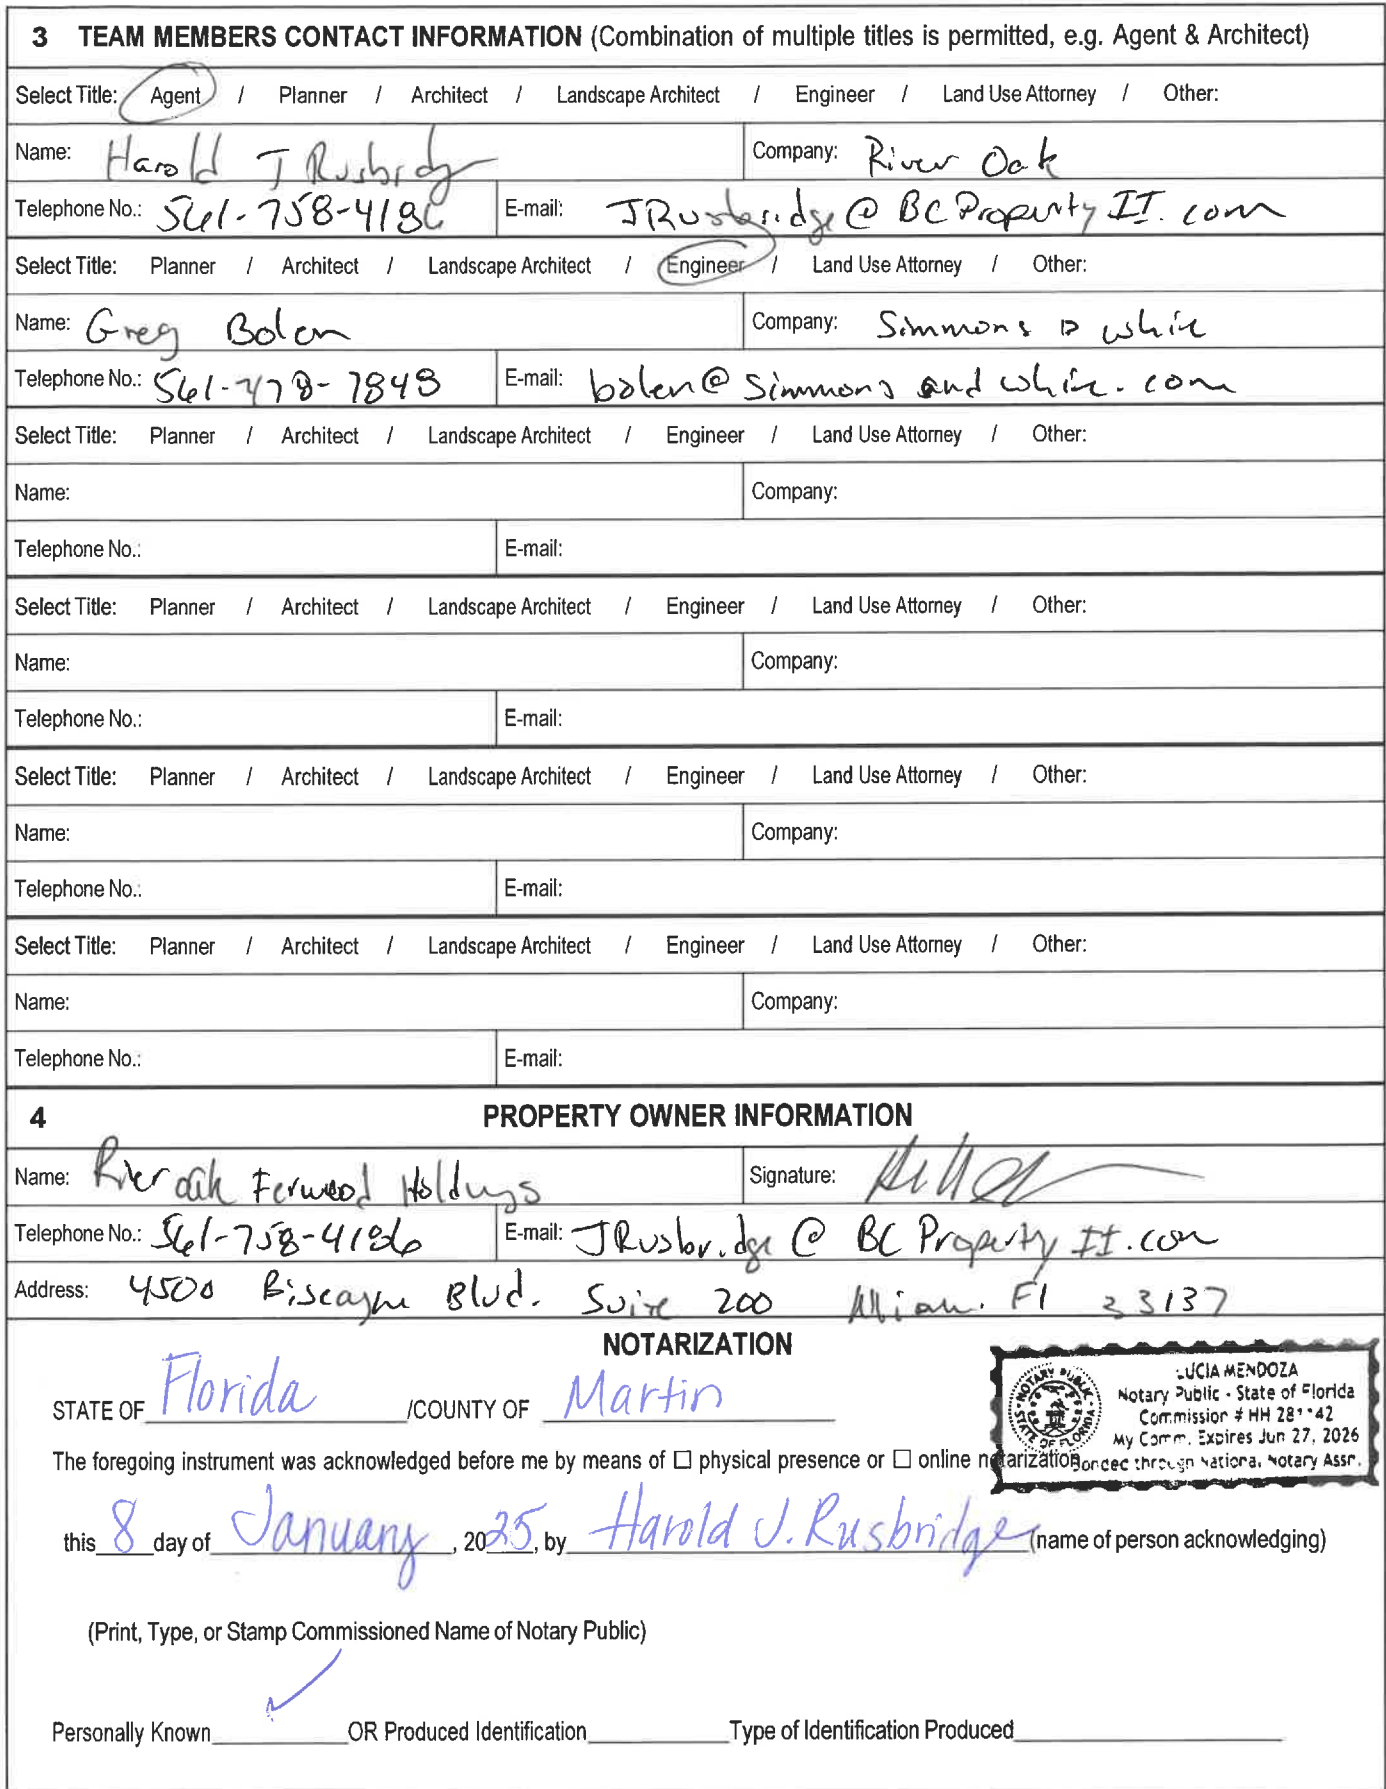 3 TEAM MEMBERS CONTACT INFORMATION (Combination of multiple titles is permitted, e.g. Agent & Architect)
Select Title: Agent / Planner / Architect / Landscape Architect / Engineer / Land Use Attorney / Other:
Name: Harold J Rusbridge Company: River Oak
Telephone No.: 561-758-4186 E-mail: JRusbridge@BCPropertyII.com
Select Title: Planner / Architect / Landscape Architect / Engineer / Land Use Attorney / Other:
Name: Greg Bolen Company: Simmons & White
Telephone No.: 561-478-7848 E-mail: bolen@simmonsandwhite.com
Select Title: Planner / Architect / Landscape Architect / Engineer / Land Use Attorney / Other:
Name: Company:
Telephone No.: E-mail:
Select Title: Planner / Architect / Landscape Architect / Engineer / Land Use Attorney / Other:
Name: Company:
Telephone No.: E-mail:
Select Title: Planner / Architect / Landscape Architect / Engineer / Land Use Attorney / Other:
Name: Company:
Telephone No.: E-mail:
Select Title: Planner / Architect / Landscape Architect / Engineer / Land Use Attorney / Other:
Name: Company:
Telephone No.: E-mail:
4 PROPERTY OWNER INFORMATION
Name: River oak Holdings Signature:
Telephone No.: 561-758-4186 E-mail: JRusbridge@BCPropertyII.com
Address: 4500 Biscayne Blvd. Suite 200 Miami. Fl 33137
NOTARIZATION
STATE OF Florida /COUNTY OF Martin
LUCIA MENDOZA
Notary Public - State of Florida
Commission # HH
My Comm. Expires Jun 27, 2026
Bonded through National Notary Assn.
NOTARY PUBLIC
STATE OF FLORIDA
The foregoing instrument was acknowledged before me by means of ☐ physical presence or ☐ online notarization
this 8 day of January, 2025, by Harold J. Rusbridge (name of person acknowledging)
(Print, Type, or Stamp Commissioned Name of Notary Public)
Personally Known ✓ OR Produced Identification Type of Identification Produced